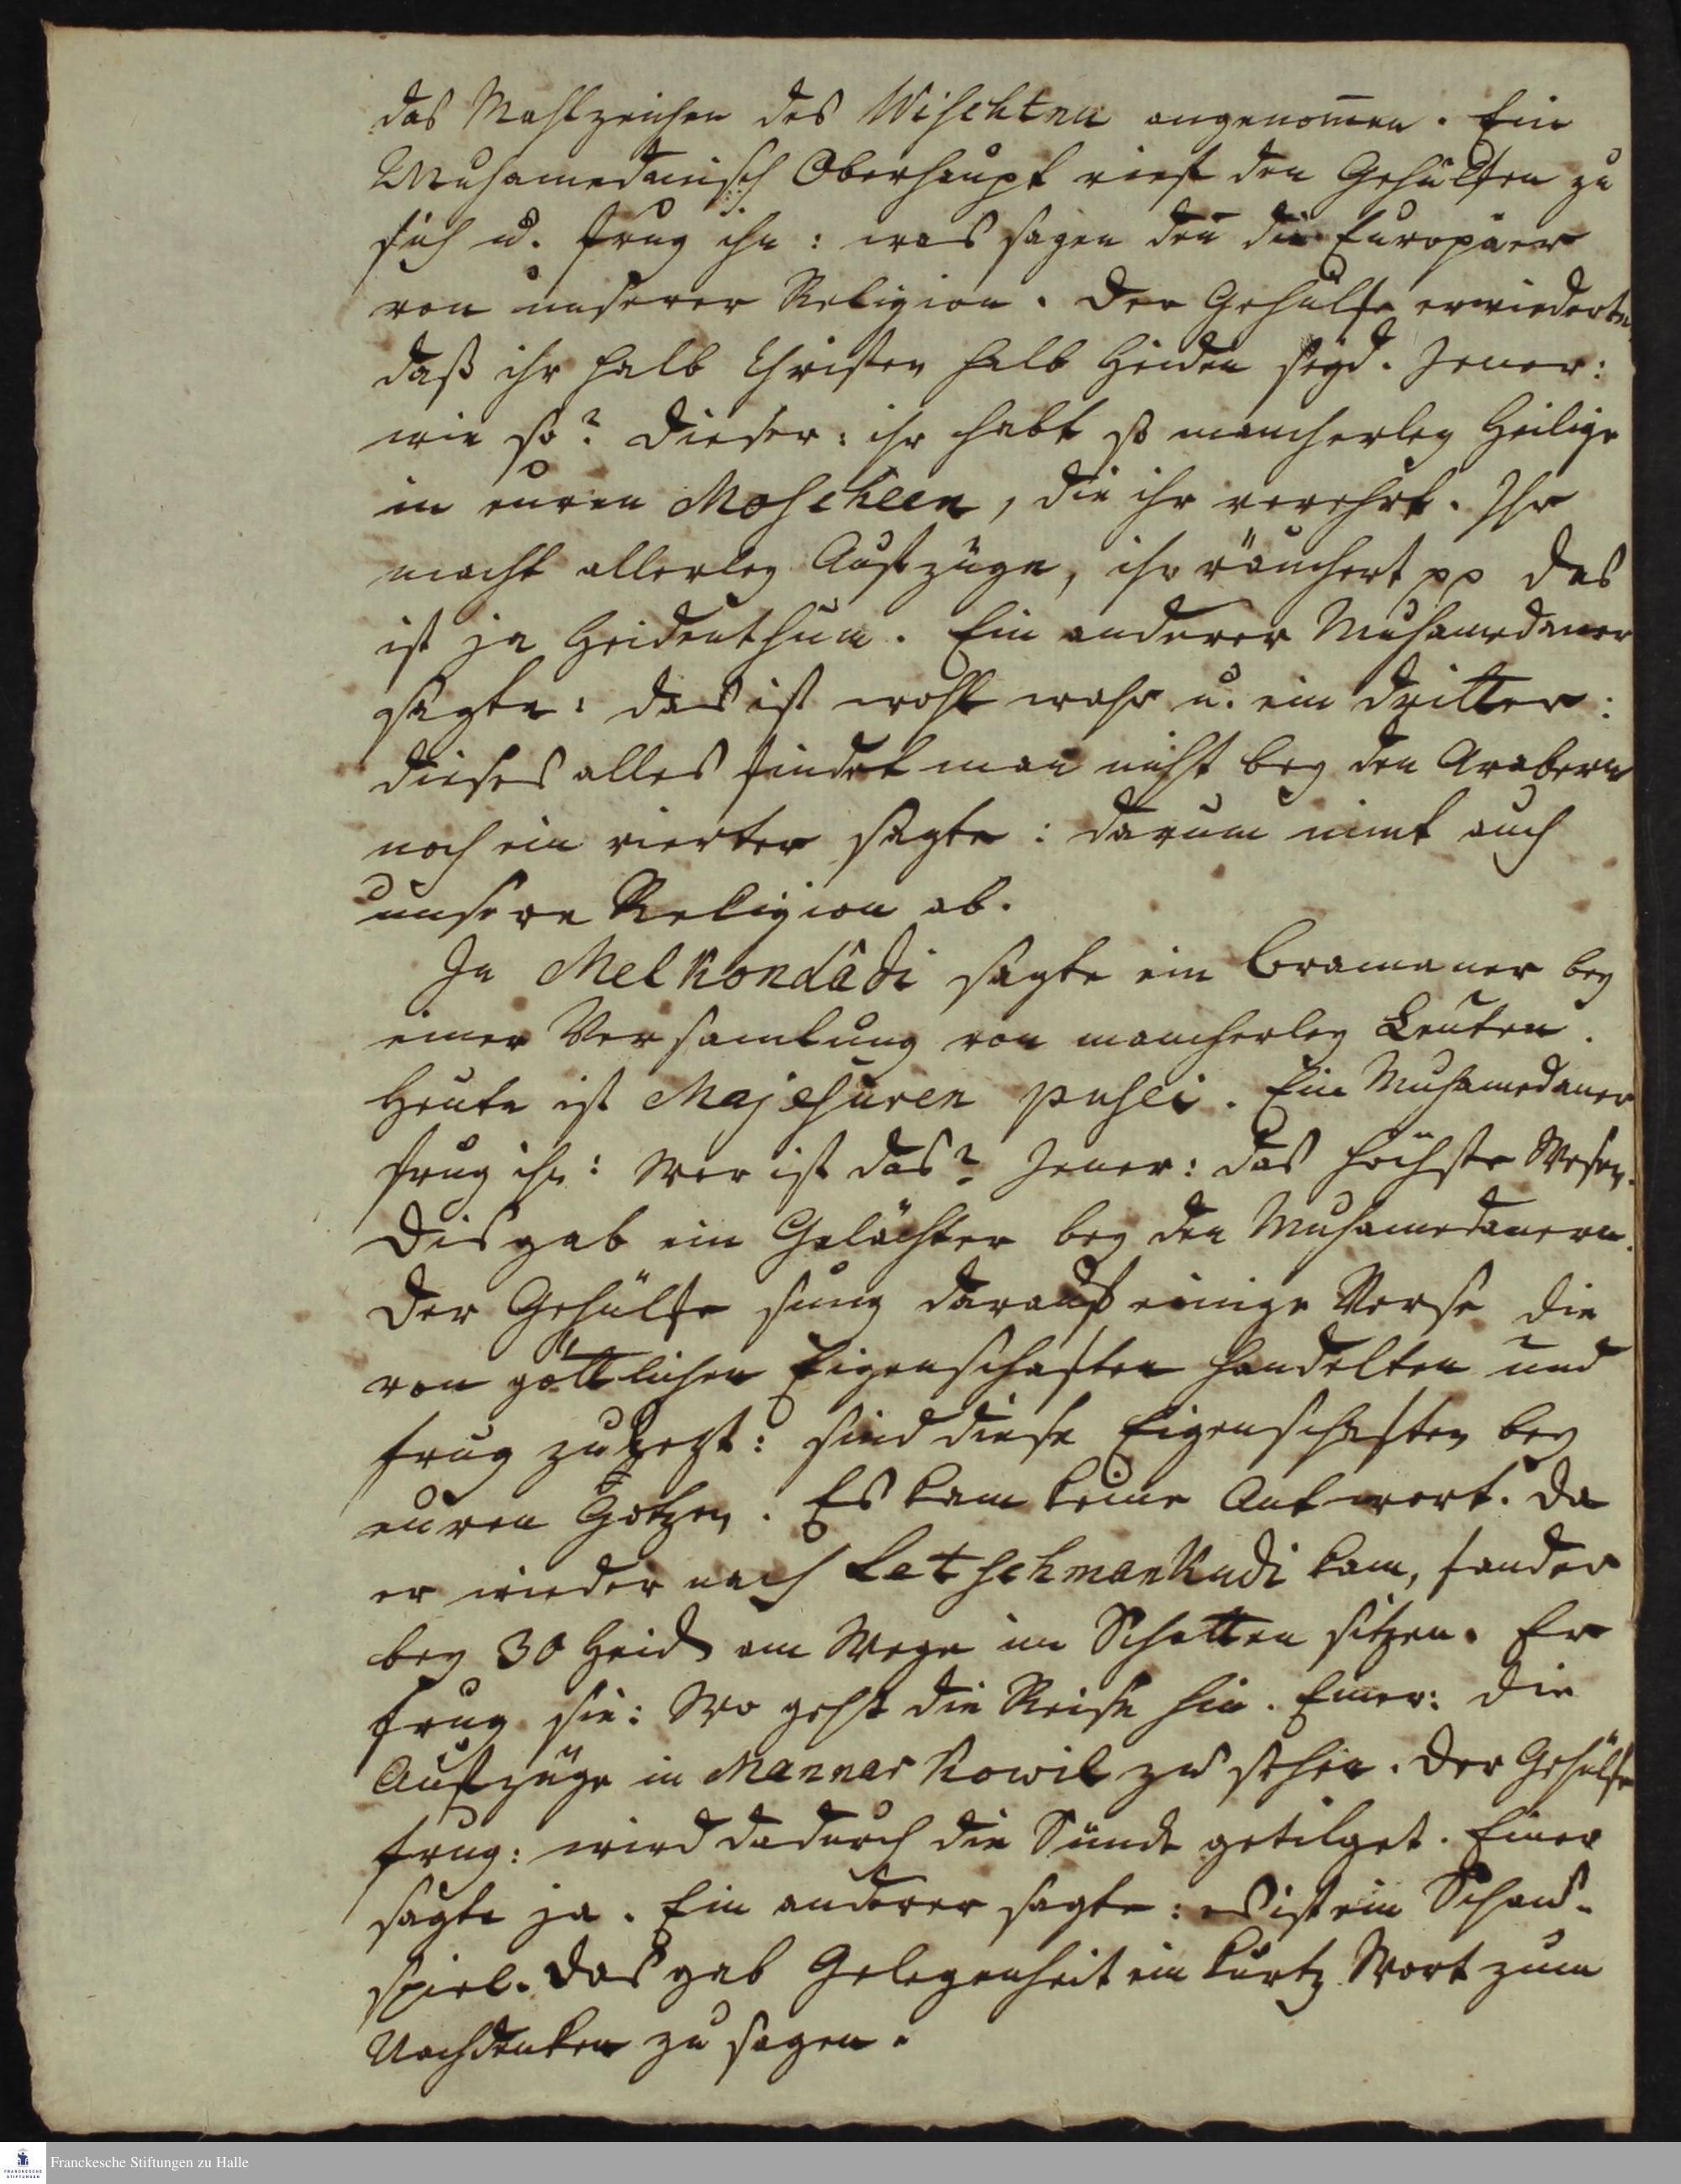 das Mahlzeichen des Wischtnu angenom̅en. Ein
Muhamedanisch Oberhaupt rief den Gehülfen zu
sich u. frug ihn: was sagen den̅ die Europäer
von unserer Religion. Der Gehülfe erwiederte,
daß ihr halb Christen halb Heiden seyd. Jener:
wie so? Dieser: ihr habt so mancherley Heilige
in euren Moscheen, die ihr verehrt. Ihr
macht allerley Aufzüge, ihr räuchert pp das
ist ja Heidenthum. Ein anderer Muhamedaner
sagte: das ist wohl wahr u. ein dritter:
dieses alles findet man nicht bey den Arabern
noch ein vierter sagte: darum nimt auch
unsere Religion ab.
In Melkondâdi sagte ein Bramaner bey
einer Versamlung von mancherley Leuten.
Heute ist Majesuren puhei. Ein Muhamedaner
frug ihn: Wer ist das? Jener: das höchste Wesen.
Dis gab ein Gelächter bey den Muhamedanern.
Der Gehülfe sung darauf einige Verse die
von göttlichen Eigenschaften handelten und
frug zuletzt: sind diese Eigenschaften bey
euren Götzen. Es kam keine Antwort. Da
er wieder nach Letschmankudi kam, fand er
bey 30 Heid. am Wege im Schatten sitzen. Er
frug sie: Wo geht die Reise hin. Einer: die
Aufzüge in Mannarkowil zu sehen. Der Gehülfe
frug: wird dadurch die Sünde getilget. Einer
sagte ja. Ein anderer sagte: es ist ein Schau-
spiel. Das gab Gelegenheit ein kurtz Wort zum
Nachdenken zu sagen.
Franckesche Stiftungen zu Halle
FRANCKESCHE
STIFTUNGEN